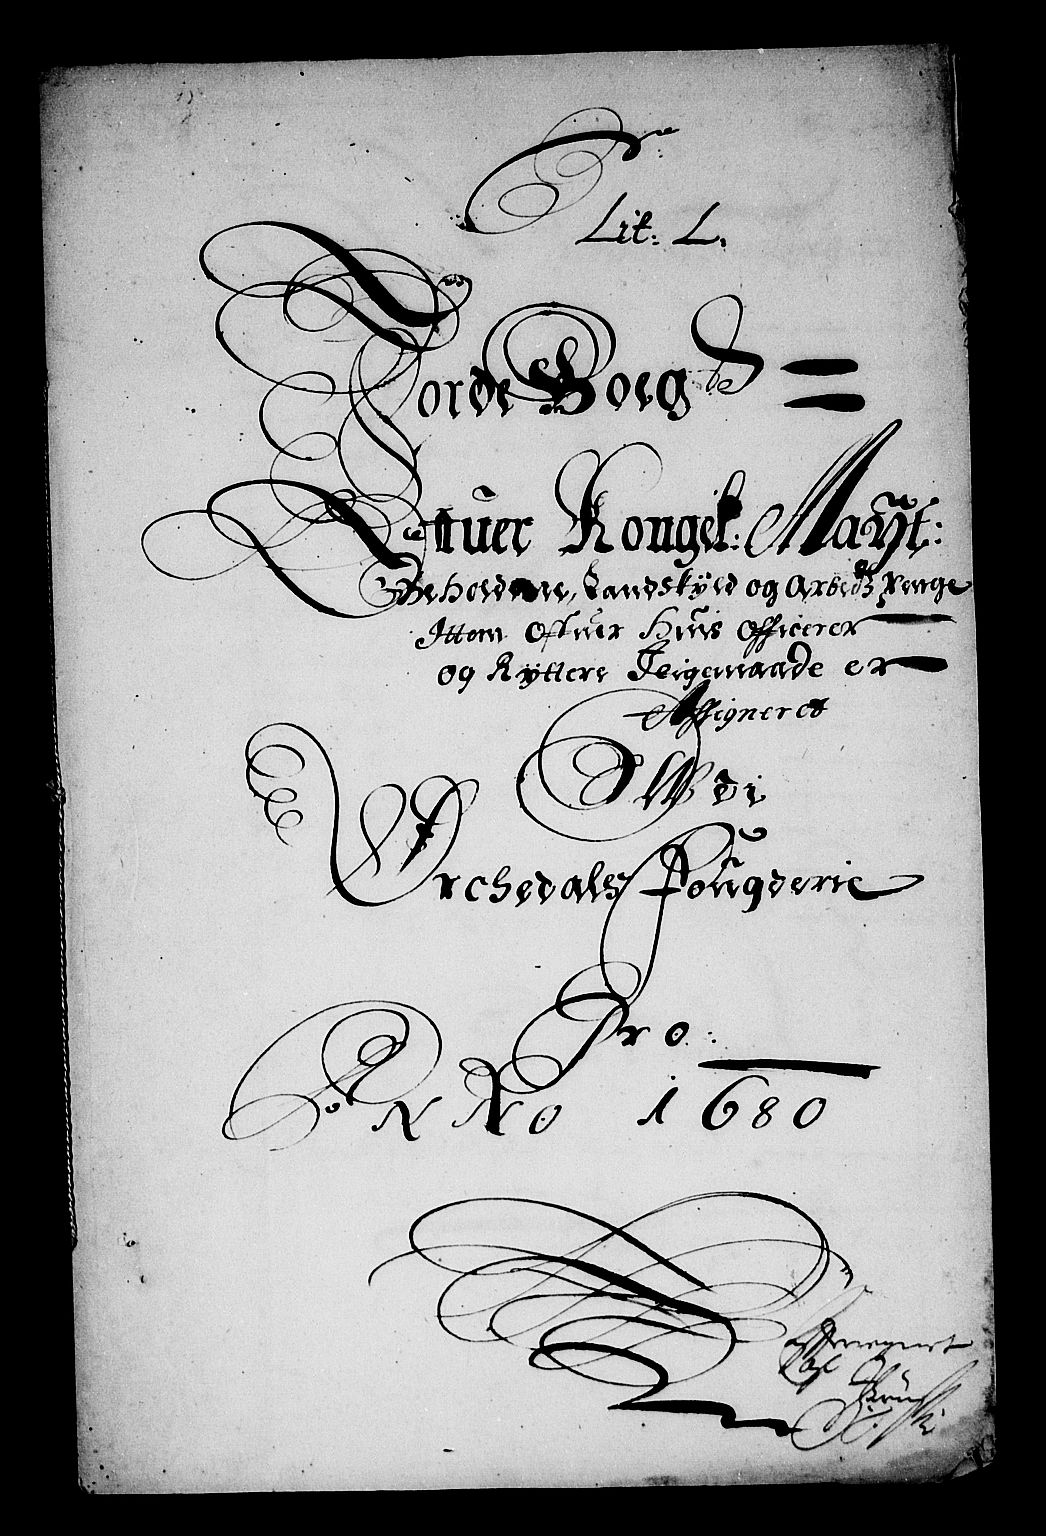 Lit: L.
Jorde Boeg
Ofuer Kongel: Mayt:
Beholdene, Landskyld og Arbeds Penge
Ittem Ofuer huis Officerer
og Ryttere Ligemaade er
Assigneret
Udi
Orchedals Fougderie
Pro:
Anno 1680